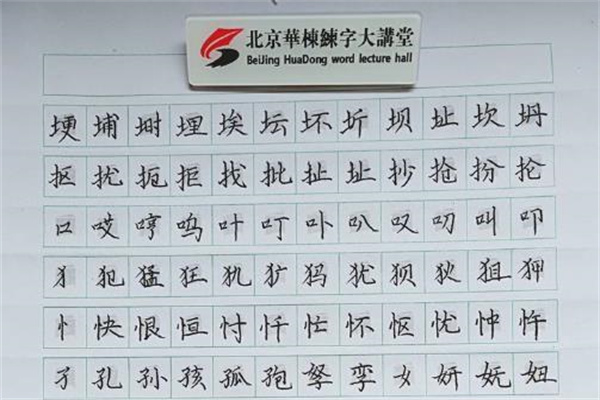 北京華棟練字大講堂
BeiJing HuaDong word lecture hall
埂埔埘埋埃坛坏圻坝址坎坍
抠扰扼拒找批扯址抄抢扮抡
口哎哼鸣叶叮卟叭叹叨叫叩
犭犯猛狂犰犷犸犹狈狄狙狎
忄快恨恒忖忏忙怀怄忧忡忤
孑孔孙孩孤孢孥孪女妍妩妞